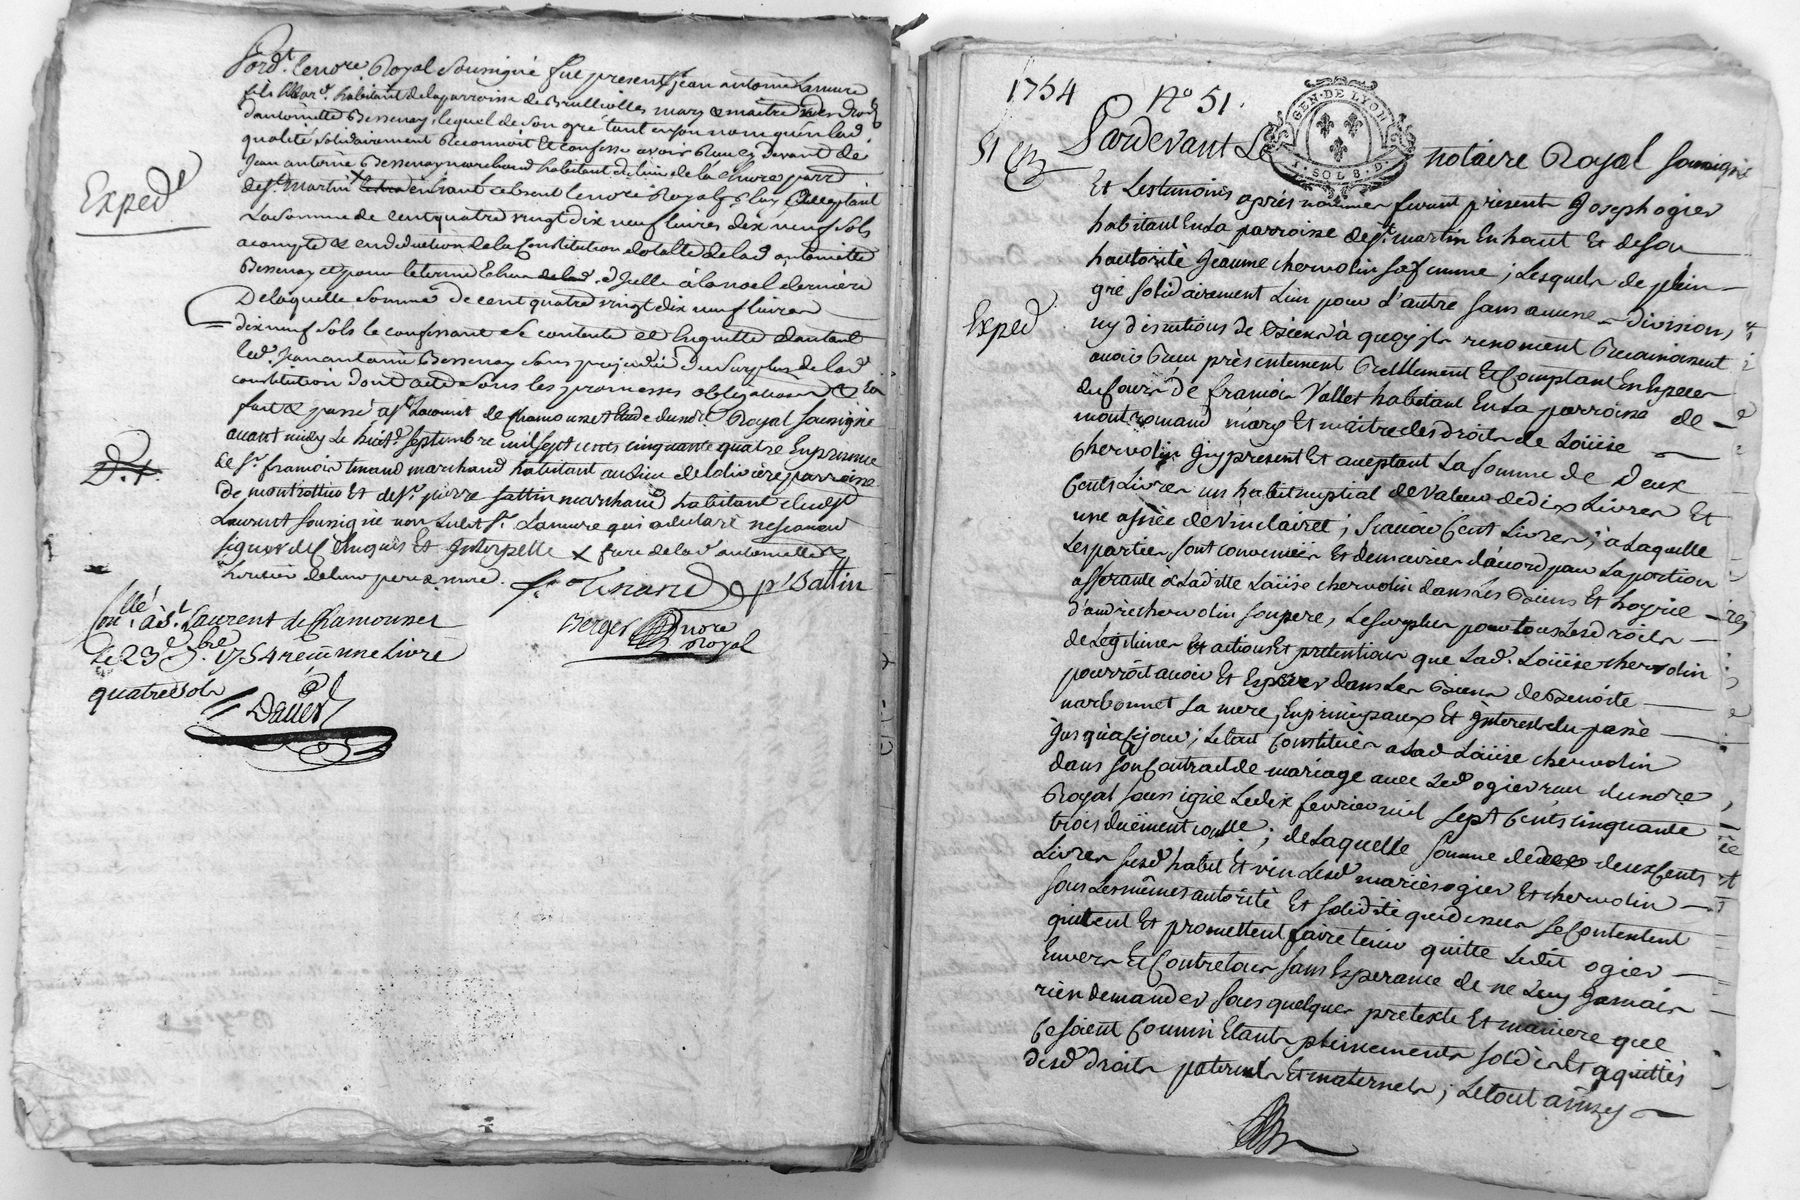 Pard.t le nore Royal soussigné fut present Jean antoine Lamure
fils habitant de la parroisse de Brullioles mary & maitre des droits
d'antoinette Bessenay, lequel de son gré tant en son nom qu'en lad
qualité solidairement Reconnoit Et confesse avoir Receu Devant de
Jean antoine Bessenay marchand habitant du lieu de la parr
de s.t martin en haut absent le nore Royal acceptant
La somme de cent quatre vingt dix neuf livres dix neuf sols
acompte & en deduction de la Constitution dotalle de lad antoinette
Bessenay et pour le terme Echeu d'Icelle à la noel derniere
De laquelle somme de cent quatre vingt dix neuf livres
dix neuf sols le confessant se contente et En quitte d'autant
led. Jean antoine Bessenay sans prejudice du surplus de lad
constitution dont acte sous les promesses obligations &
fait & passé a s.t Laurent de Chamousset Etude du nore Royal soussigné
avant midy Le huit.e septembre mil sept cents cinquante quatre En presence
de s.r francois tinand marchand habitant au lieu de la riviere parroisse
de montrottier Et de s.r pierre Sattin marchand habitant dud s.t
Laurent soussignés non Ledit s.r Lamure qui a declaré ne scavoir
signer de ce Enquis Et Interpellé x frere de lad antoinette &
heritier de leur pere & mere.
f. Tinand P Sattin
Berger nore
Royal
Exped.e
D.t.
Con.llé à S.t Laurent de Chamousset
Le 23 7.bre 1754 receu une Livre
quatre sols
David
1754 N.o 51.
GEN. DE LYON
1. SOL 8. D.
51
Exped
Pardevant Le notaire Royal soussigné
Et Les temoins après nommés furent présents Joseph ogier
habitant En La parroisse de s.t martin En haut Et de son
hautorité Jeanne chervolin sa femme ; Lesquels de plein
gré solidairement L'un pour L'autre sans aucune division,
ny discutions de Biens à quoy ils renoncent Reconnoissent
avoir Receu présentement Reellement Et Comptant En Especes
du Cours de francois Vallet habitant En La parroisse de
montromand mary Et maitre des droits de Loüise
Chervolin Icy present Et acceptant La somme de Deux
Cents Livres un habit nuptial de Valeur de dix Livres Et
une asnée de vin clairet ; scavoir Cent Livres ; a Laquelle
Les parties sont convenües Et demeurées d'acord pour La portion
afferante a Ladite Loüise chervolin dans Les Biens Et hoyrie
d'andré chervolin son pere, Le surplus pour tous Les droits
de Legitime Et actions Et pretentions que Lad. Loüise chervolin
pourroit avoir Et Esperer dans Les Biens de Benoite
narbonnet sa mere, En principaux Et Interest du passé
Jusqu'a ce jour ; Le tout Constitué a Lad Loüise chervolin
dans son Contract de mariage avec Led ogier receu du nore
Royal soussigné Le dix fevrier mil sept Cents cinquante
trois duëment con.llé ; de Laquelle somme de deux Cents
Livres susd habit Et vin Lesd mariés ogier Et chervolin
sous Les mêmes autorité Et solidité que dessus se Contentent
quittent Et promettent faire tenir quitte Ledit ogier
Envers Et Contre tous sans Esperance de ne Luy Jamais
rien demander sous quelques pretexte Et maniere que
Ce soient Comm' Etants pleinements soldés Et aquittés
desd droits paternels Et maternels ; Le tout ainsy